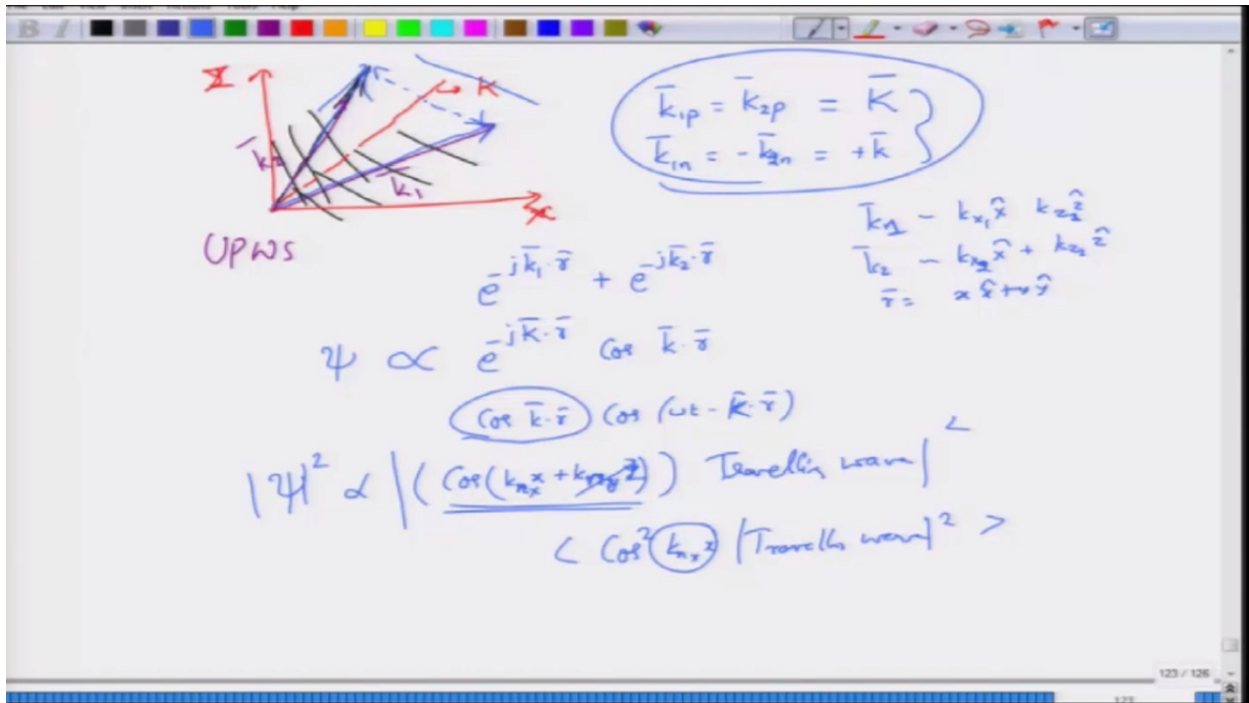 B I
z
K
k̄₂
k̄₁
x
UPWS
k̄₁ₚ = k̄₂ₚ = K̄
k̄₁ₙ = -k̄₂ₙ = +k̄
kₓ₁x̂
k̄₂ - kₓ₂x̂ + k_z₂ẑ
r̄ =
e^{-jk̄₁·r̄} + e^{-jk̄₂·r̄}
ψ ∝ e^{-jK̄·r̄} cos k̄·r̄
cos k̄·r̄ cos (ωt - K̄·r̄)
|ψ|² ∝ |(cos(kₙₓx + )) Travelling wave|²
< cos² |Travelling wave|² >
123 / 126